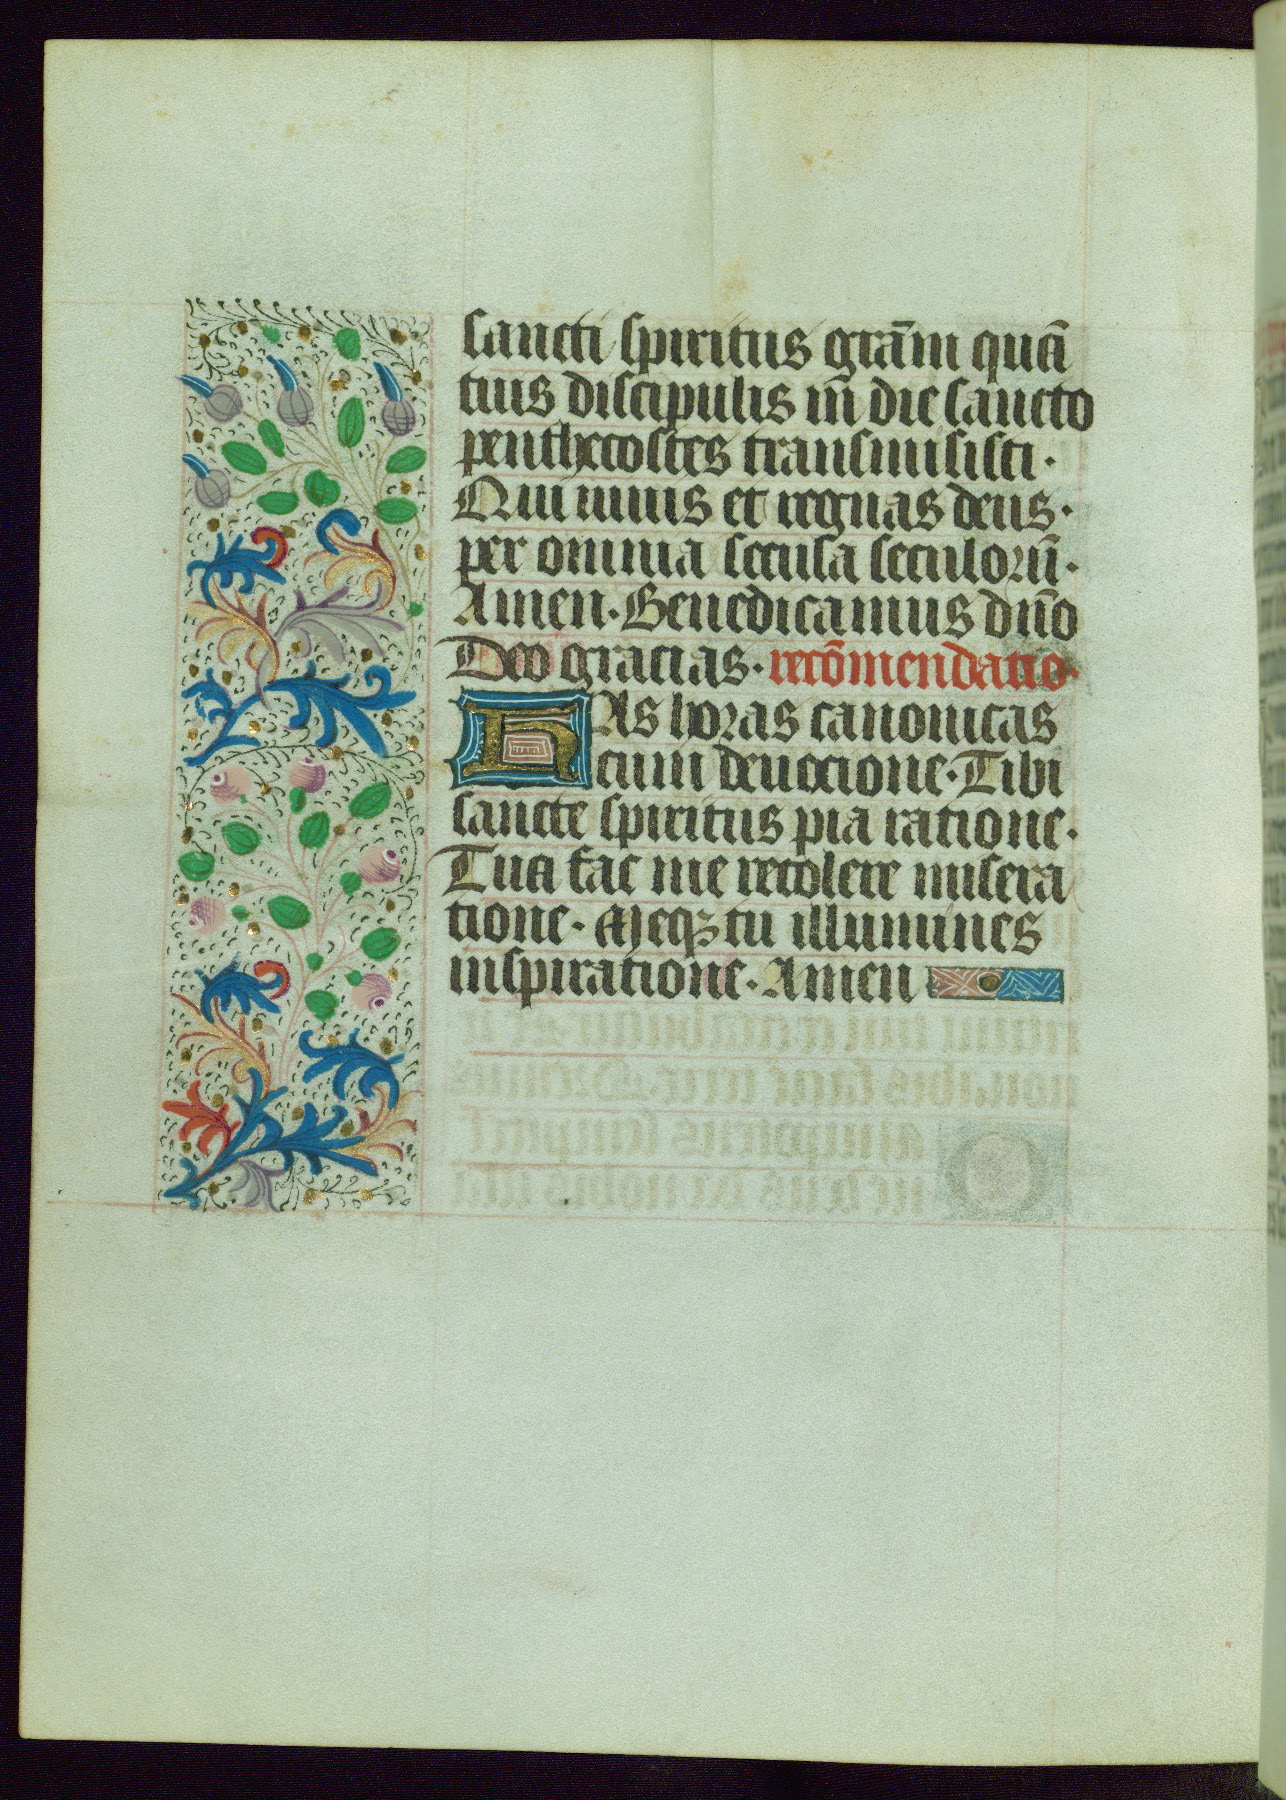 sancti spiritus grãm quã
tuis discipulis in die sancto
penthecostes transmisisti.
Qui uiuis et regnas deus.
per omnia secula seculorũ.
Amen. Benedicamus dño
Deo gracias. recõmendatio.
HAs horas canonicas
cum deuocione. Tibi
sancte spiritus pia ratione.
Tua fac me recolere misera
tione. Meqꝫ tu illumines
inspiratione. Amen